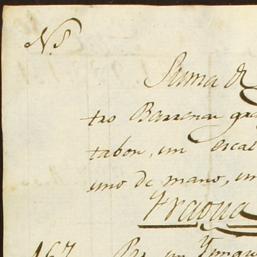 N.s
Suma de
tro Barrenas gra
tabon, un escal
uno de mano, un
Fragua
167. Por un Yunque